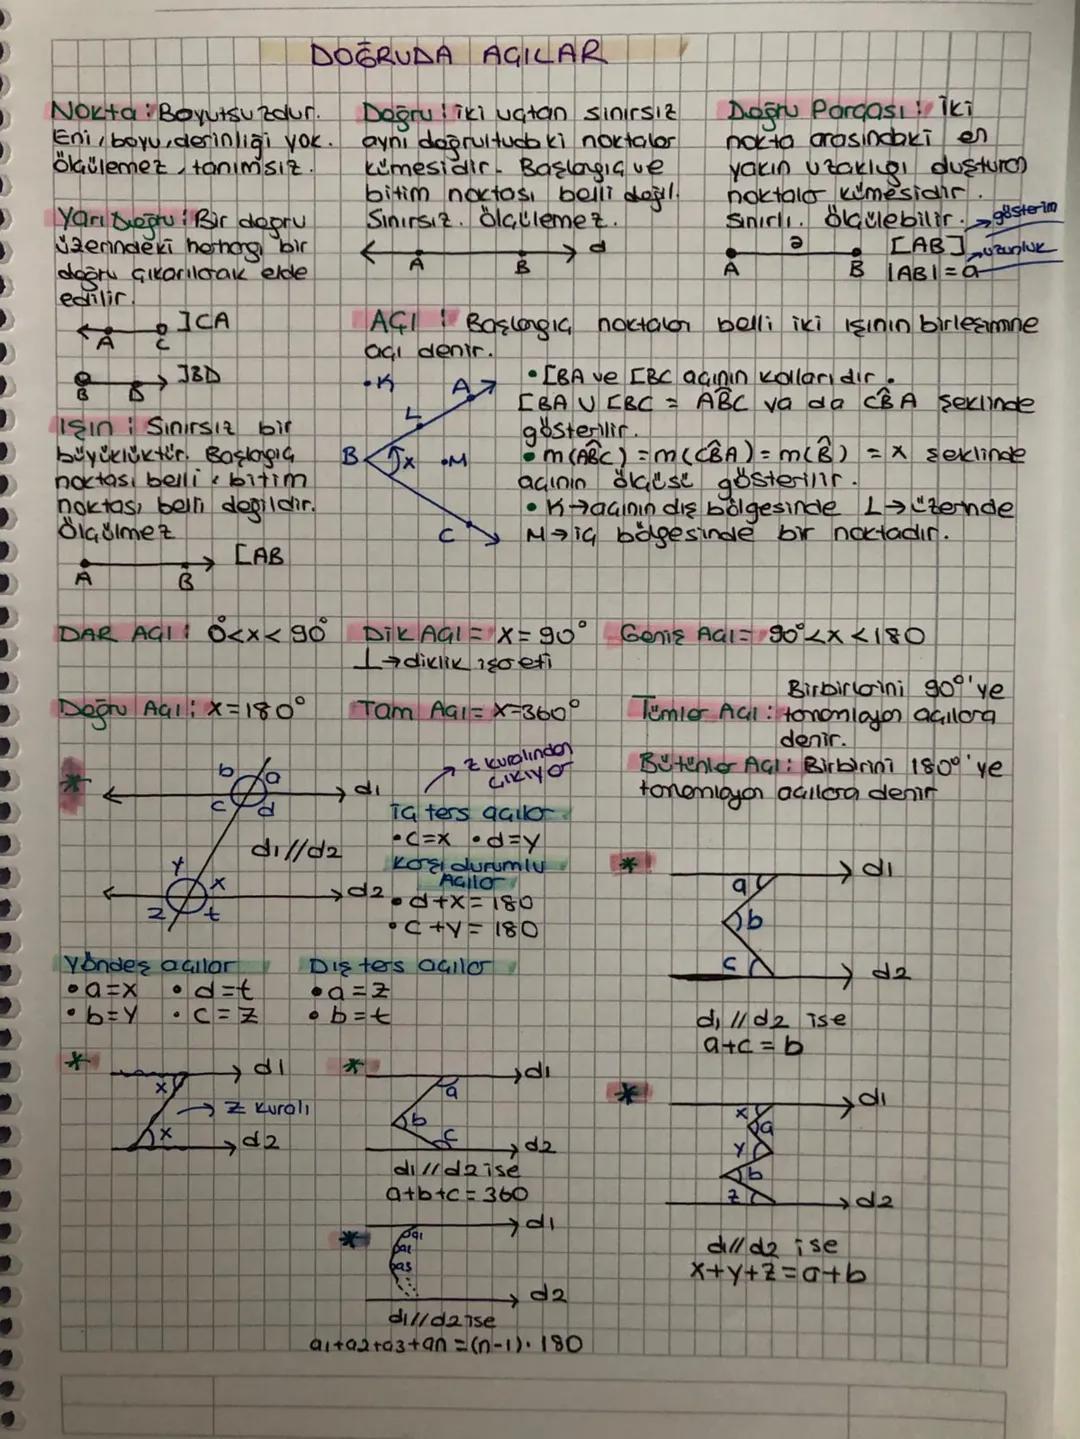 DOĞRUDA AÇILAR
Nokta: Boyutsuzdur.
Eni, boyu, derinliği yok.
ölçülemez, tanımsız.
Yarı Doğru: Bir doğru
üzerindeki herhangi bir
doğru çıkarılarak elde
edilir.
]CA
A C
]BD
B D
Işın: Sınırsız bir
büyüklüktür. Başlagıç
noktası belli, bitim
noktası belli değildir.
Ölçülmez
[AB
A B
Doğru: iki uçtan sınırsız
aynı doğrultudaki noktalar
kümesidir. Başlangıç ve
bitim noktası belli değil.
Sınırsız. Ölçülemez.
A B d
Doğru Parçası: İki
nokta arasındaki en
yakın uzaklığı oluşturan
noktalar kümesidir.
Sınırlı. Ölçülebilir.
a
A B
[AB] → gösterim
|AB| = a → uzunluk
AÇI: Başlangıç noktaları belli iki ışının birleşimine
açı denir.
K A L B x M C
• [BA ve [BC açının kollarıdır.
[BA U [BC = ABC ya da CBA şeklinde
gösterilir.
• m(ABC) = m(CBA) = m(B) = x şeklinde
açının ölçüsü gösterilir.
• K → açının dış bölgesinde L → üzerinde
M → iç bölgesinde bir noktadır.
DAR AÇI: 0°<x<90°
Dik AÇI = x = 90°
⊥ → diklik işareti
Geniş Açı = 90°<x<180
Doğru Açı: x=180°
Tam Açı = x=360°
Birbirlerini 90°'ye
Tümler Açı: tamamlayan açılara
denir.
Bütünler Açı: Birbirini 180°'ye
tamamlayan açılara denir
* b a c d d1
d1//d2
y x z t d2
→ z kuralından
çıkıyor
iç ters açılar
• c=x • d=y
Karşı durumlu
Açılar
• d+x = 180
• c+y = 180
Yöndeş açılar
• a=x • d=t
• b=y • c=z
Dış ters açılar
• a=z
• b=t
* d1
a b c
d2
d1 // d2 ise
a+c = b
* d1
x → Z kuralı
x d2
* d1
a b c
d2
d1 // d2 ise
a+b+c = 360
* d1
x a
y
b
z d2
d1//d2 ise
x+y+z = a+b
* d1
a1
d2
d1//d2 ise
a1+a2+a3+an = (n-1).180